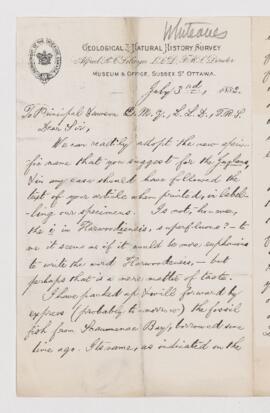 Whiteaves
GEOLOGICAL & NATURAL HISTORY SURVEY
Alfred R. C. Selwyn LL.D., F.R.S. Director
MUSEUM & OFFICE, SUSSEX ST. OTTAWA.
July 3rd, 1882.
To Principal Dawson C.M.G., L.L.D., F.R.S.
Dear Sir,
We can readily adopt the new speci-
fic name that you suggest for the
in any case should have followed the
text of your article when printed, in label-
ling our specimens. Is not, however,
the i in Harwoodiensis, superfluous? – to
me it seems as if it would be more euphonious
to write the word Harwoodensis, – but
perhaps that is a mere matter of taste.
I have packed up & will forward by
express (probably to-morrow) the fossil
fish from Scaumenac Bay, borrowed some
time ago. Its name, as indicated on the